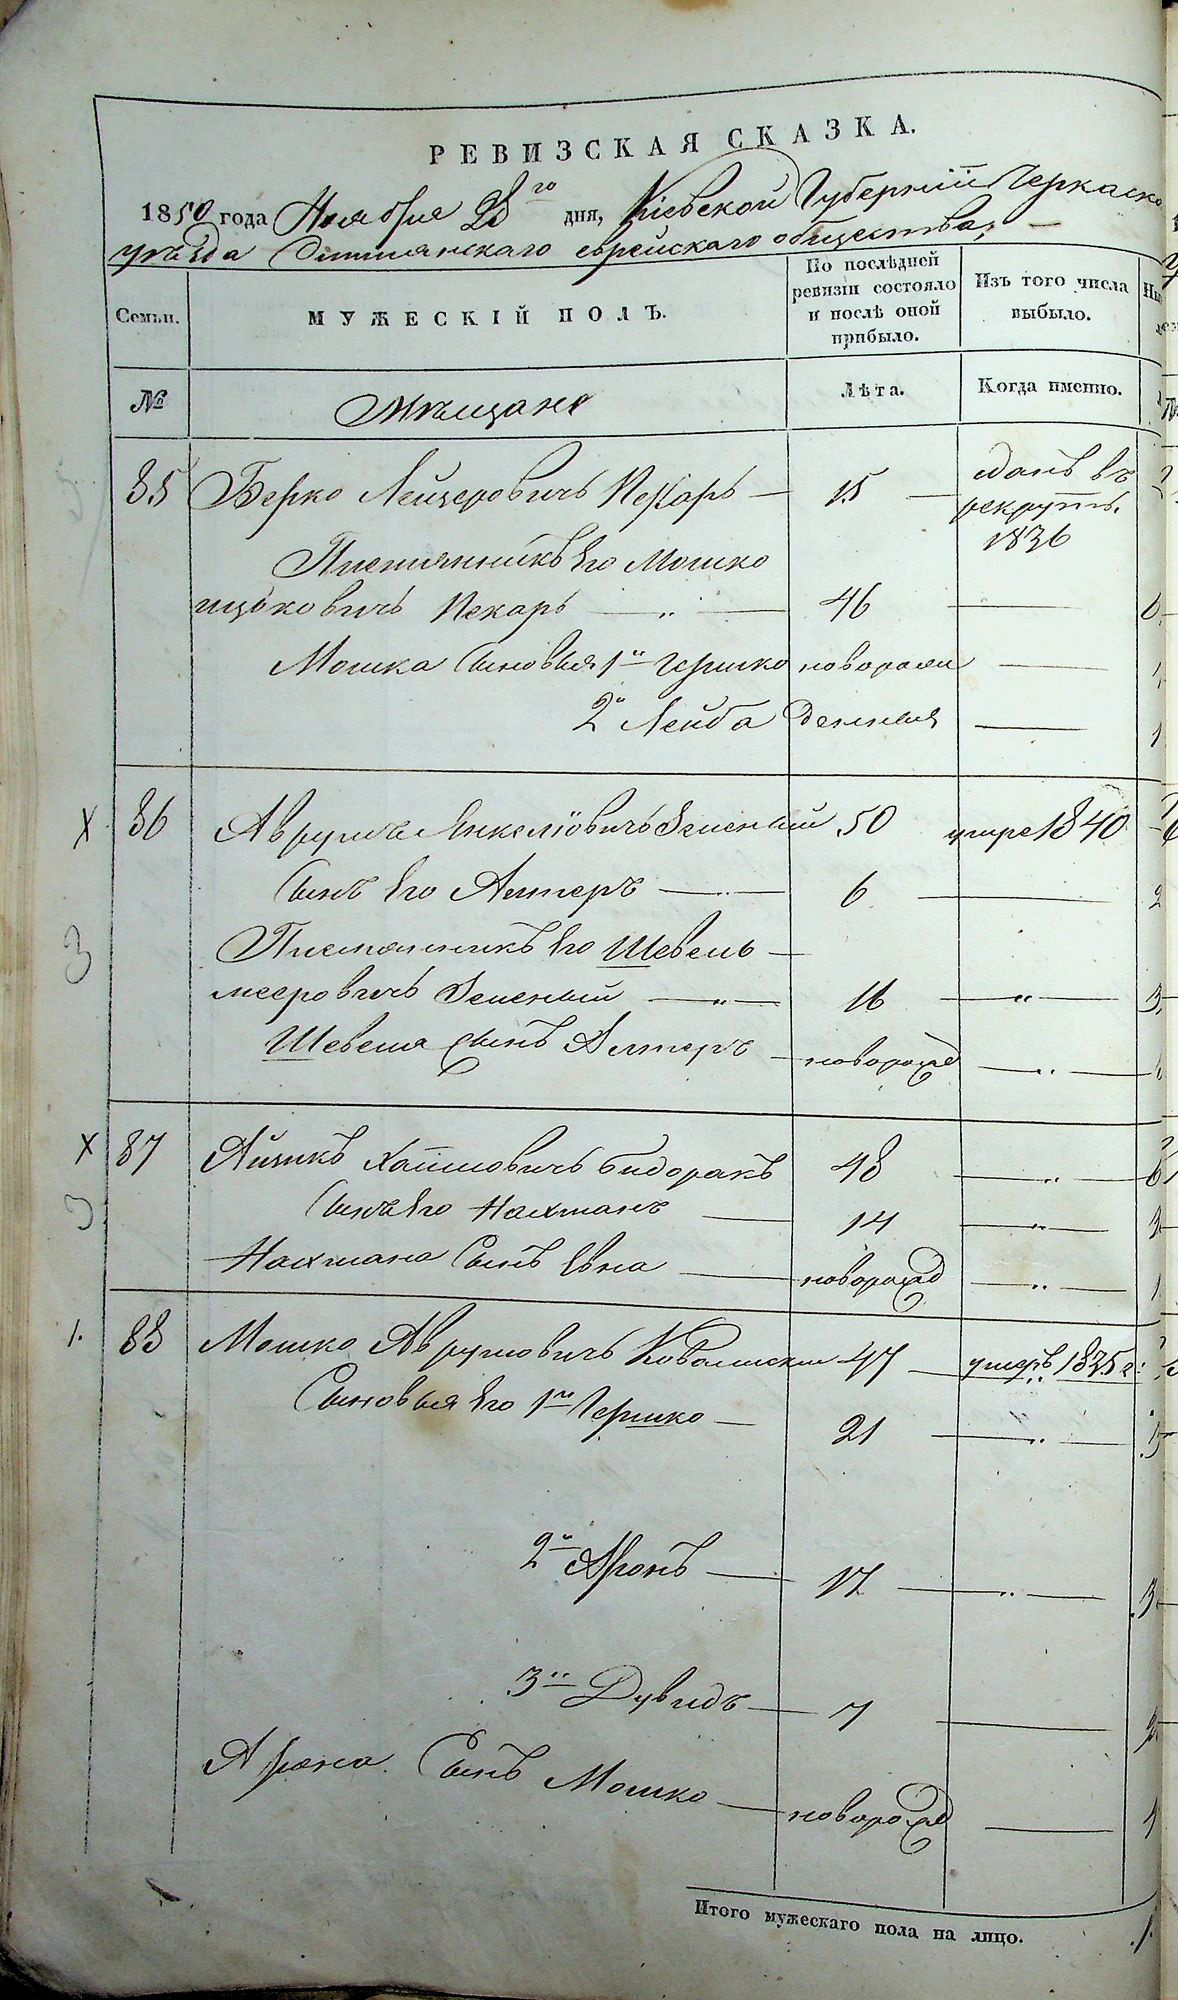 РЕВИЗСКАЯ СКАЗКА.
1850 года Ноября 28го дня, Кіевской Губерніи Черкаска
уѣзда Смилянскаго еврейскаго общества,
Семьи.
МУЖЕСКІЙ ПОЛЪ.
По послѣдней ревизіи состояло и послѣ оной прибыло.
Изъ того числа выбыло.
№
Мѣщане
Лѣта.
Когда именно.
85 Берко Лейзеровичъ Пекарь — 15 — сданъ въ
рекруты.
1836
Племянникъ Его Мошко
ицьковичъ Пекарь — „ — 46 —
Мошка Сыновья 1й Гершко новорож
2й Лейба денныя —
X 86 Аврумъ Янкеліовичъ Зеленый 50 умре 1840
Сынъ Его Алтеръ — 6 —
3
Племянникъ Его Шевель —
мееровичъ Зеленый — „ — 16 — „ —
Шевеля Сынъ Алтеръ — новорожд — „ —
X 87 Айзикъ Хаимовичъ Сидоракъ 48 — „ —
3 Сынъ Его Нахманъ — 14 — „ —
Нахмана Сынъ Евна — новорожд — „ —
1. 88 Мошко Аврумовичъ Ковалински 47 — умеръ 1835 г:
Сыновья Его 1й Гершко — 21 — „ —
2й Аронъ — 17 — „ —
3й Дувидъ — 7 —
Арона Сынъ Мошко — новорожд —
Итого мужескаго пола на лицо.